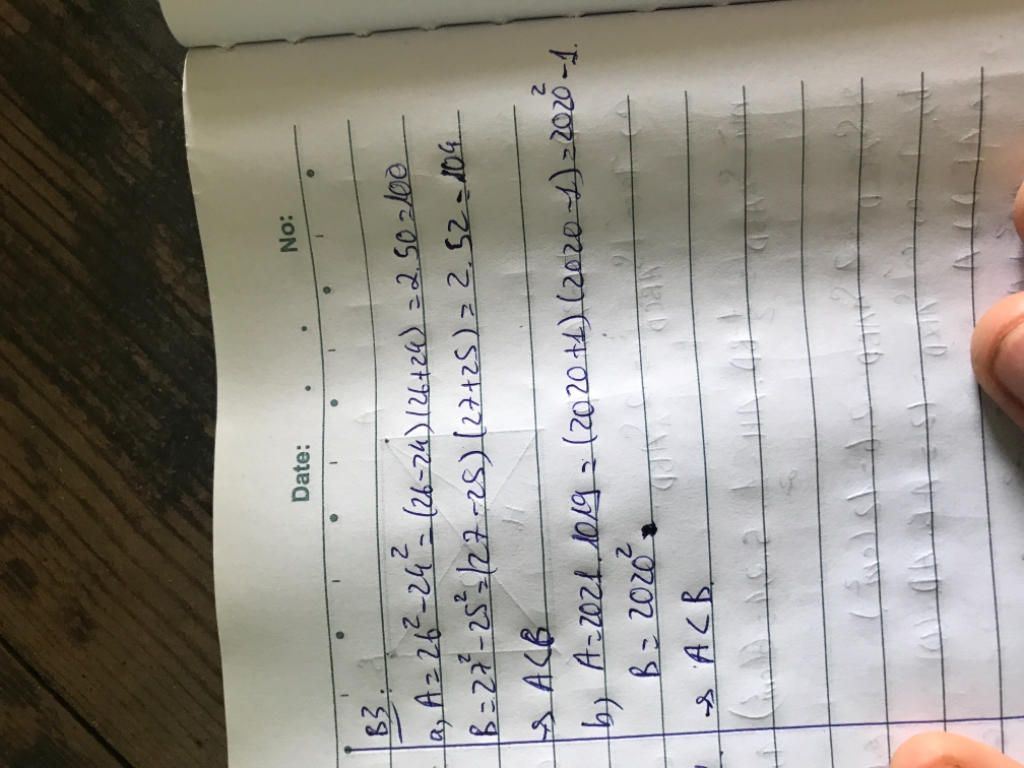 Date: No:
B3:
a) A = 26² - 24² = (26-24)(26+24) = 2.50 = 100
B = 27² - 25² = (27-25)(27+25) = 2.52 = 104
→ A < B
b) A = 2021.1019 = (2020+1)(2020-1) = 2020² - 1.
B = 2020²
→ A < B